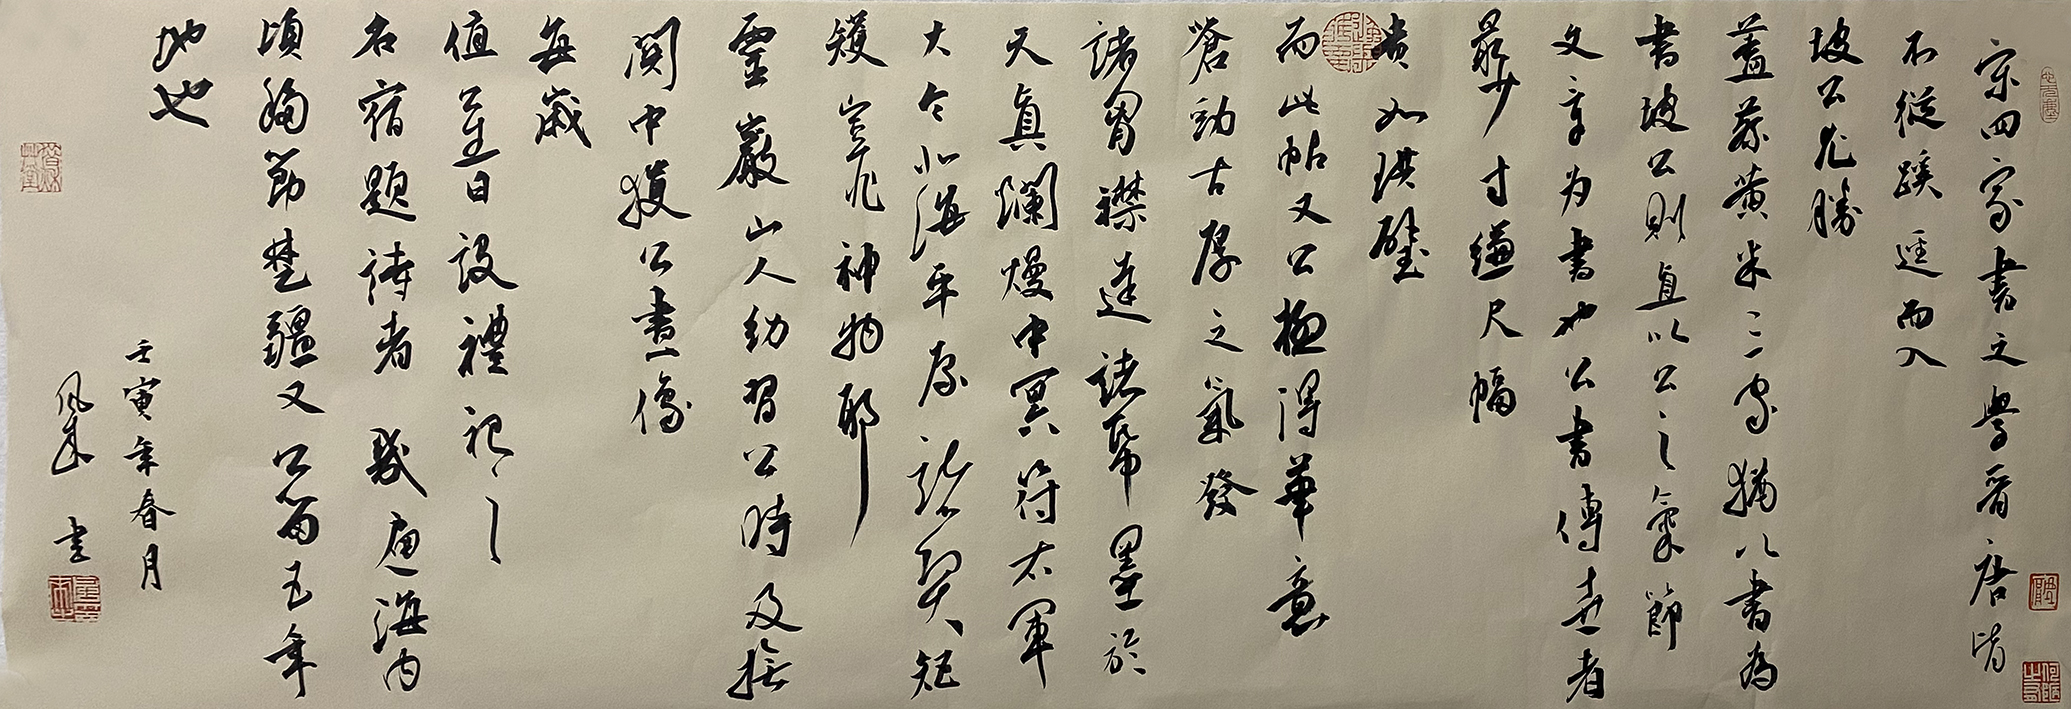 宋四家書之學晉唐皆
不從蹊逕而入
坡公尤勝
蓋蔡黃米三家猶以書為
書坡公則直以公之氣節
文章為書也公書傳世者
最少寸縑尺幅
貴如珙璧
而此帖又公極得華意
蒼勁古厚之氣發
諸胷襟達諸帋墨於
天真瀾熳中冥符太軍
大令北海平原諸契矩
矱豈非神物耶
靈巖山人幼習公時及撫
関中獲公畫像
每歲
值生日設禮祀之
名宿題詩者幾遍海内
頃移節楚疆又公留五年
地也
壬寅年春月
書